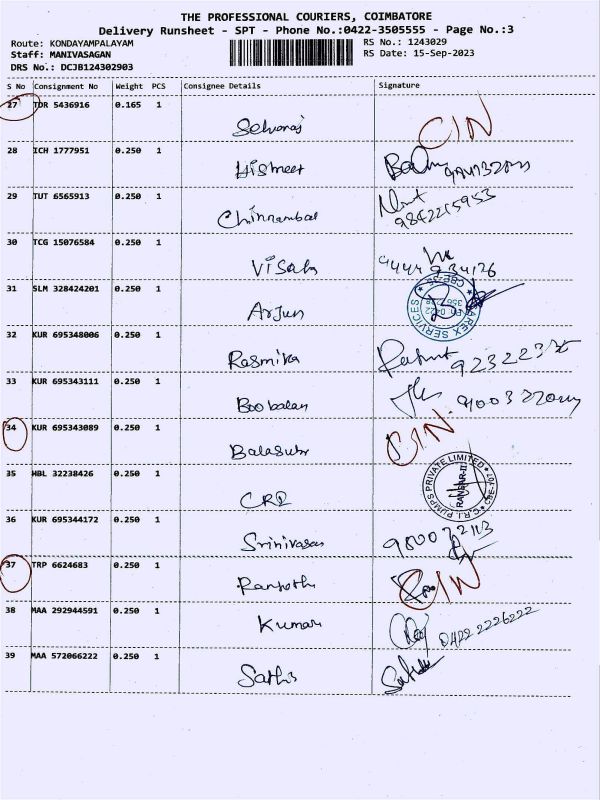 THE PROFESSIONAL COURIERS, COIMBATORE
Delivery Runsheet - SPT - Phone No.:0422-3505555 - Page No.:3
Route: KONDAYAMPALAYAM RS No.: 1243029
Staff: MANIVASAGAN RS Date: 15-Sep-2023
DRS No.: DCJB124302903
S No Consignment No Weight PCS Consignee Details Signature
27 TDR 5436916 0.165 1
Selvaraj CIN
28 ICH 1777951 0.250 1
29 TUT 6565913 0.250 1
Chinnambal 9842215953
30 TCG 15076584 0.250 1
31 SLM 328424201 0.250 1
Arjun
32 KUR 695348006 0.250 1
Rasmika
33 KUR 695343111 0.250 1
Boobalan
34 KUR 695343089 0.250 1
Balasubr CIN
35 HBL 32238426 0.250 1
C.R.I. PUMPS PRIVATE LIMITED
36 KUR 695344172 0.250 1
Srinivasan
37 TRP 6624683 0.250 1
CIN
38 MAA 292944591 0.250 1
Kumar 0422 2226222
39 MAA 572066222 0.250 1
Sathis